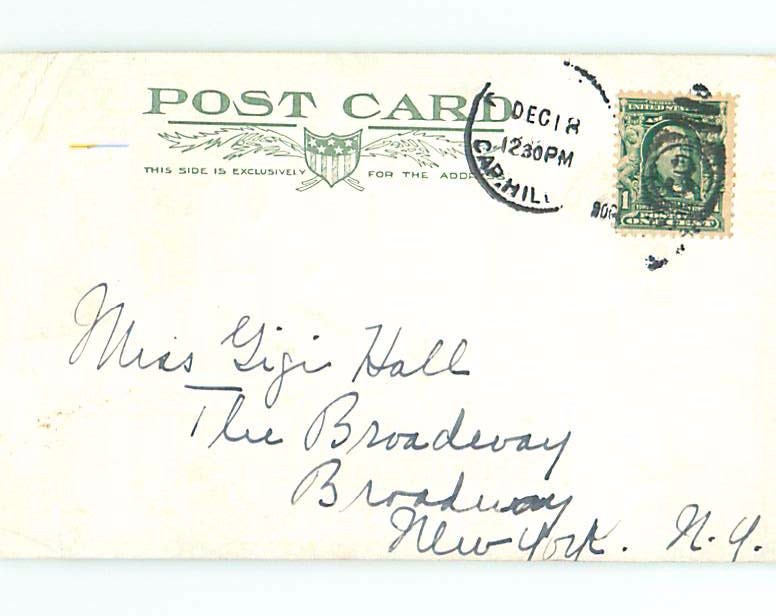 POST CARD
THIS SIDE IS EXCLUSIVELY FOR THE ADDRESS
DEC 18
12 30 PM
CAP. HILL
190
SERIES
UNITED STATES
1
ONE CENT
Miss Gigi Hall
The Broadway
Broadway
New York. N.Y.